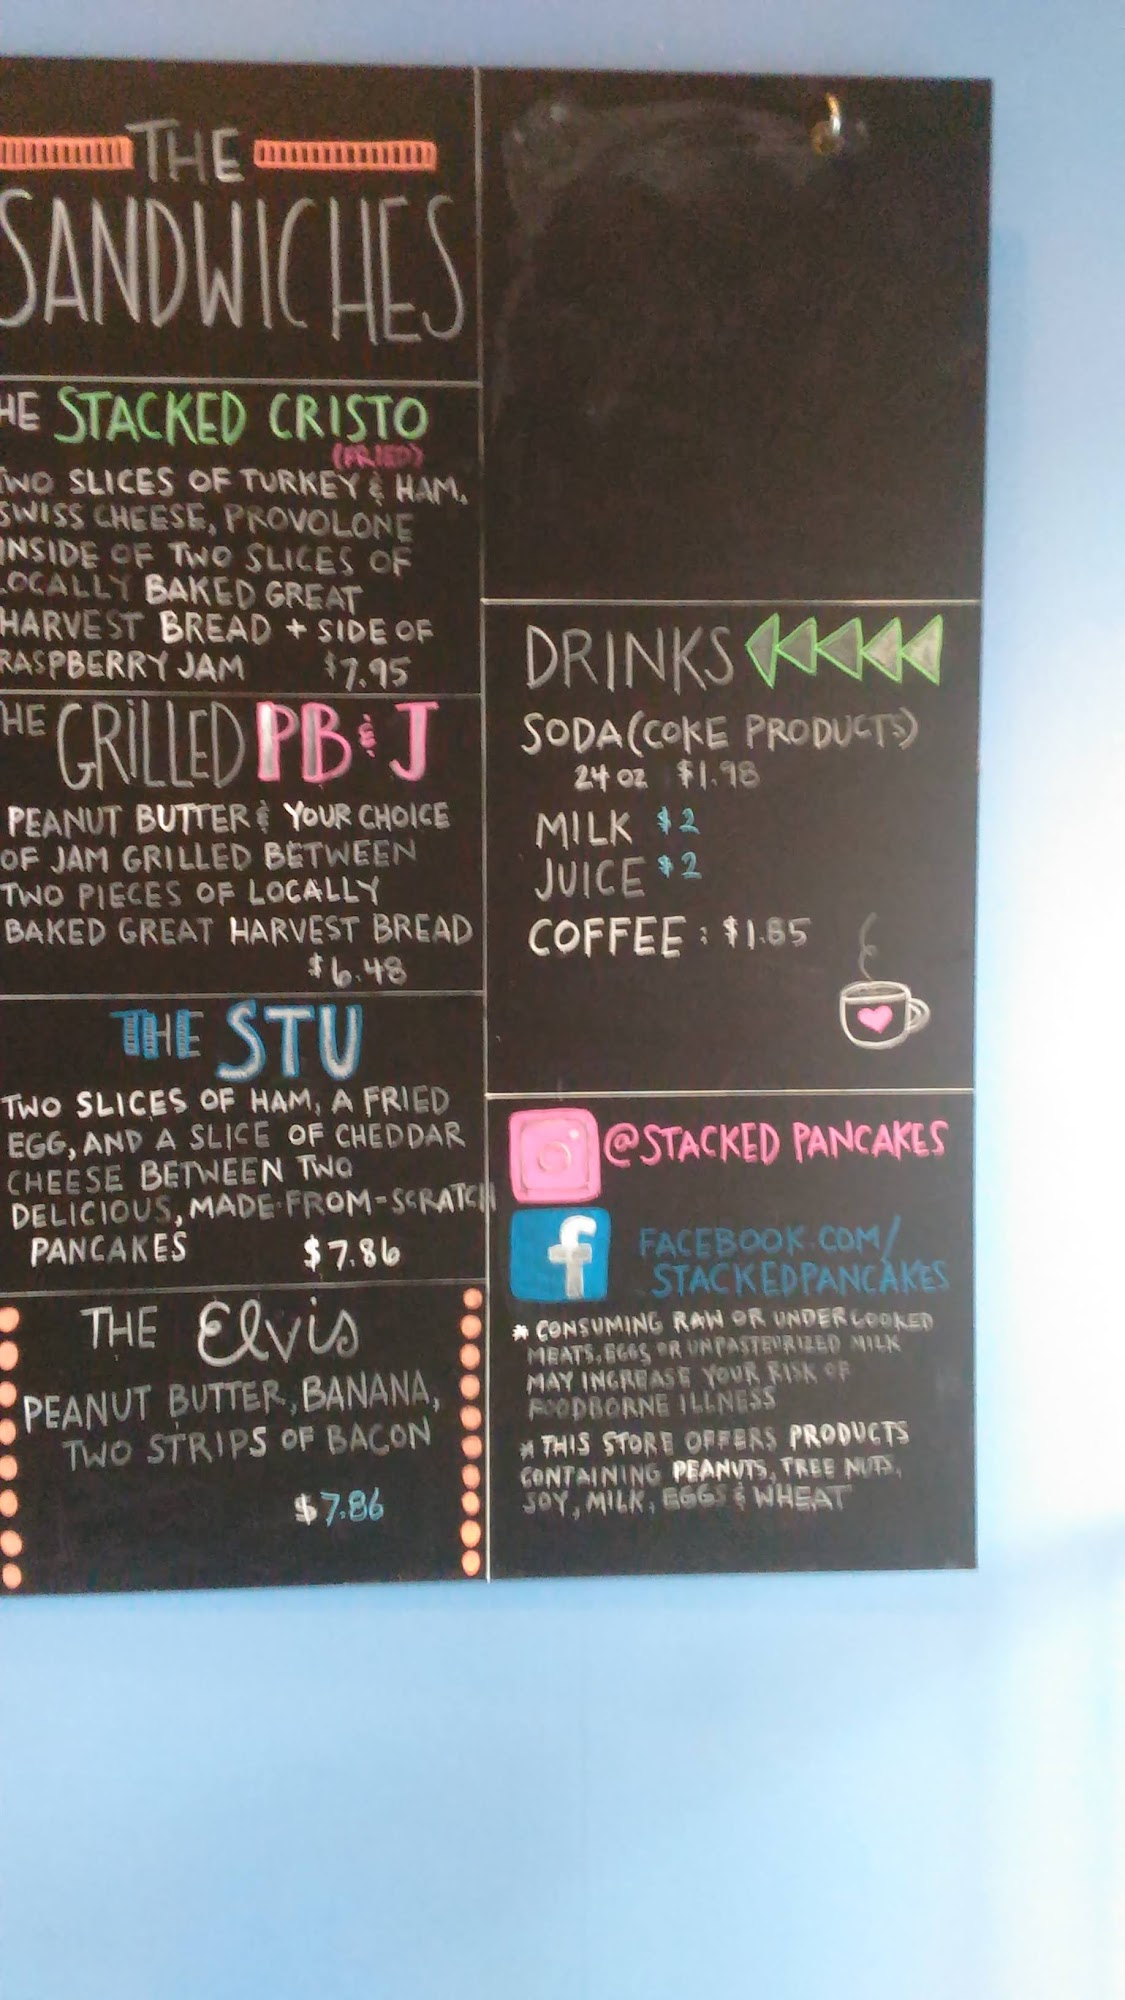 THE
SANDWICHES
HE STACKED CRISTO
(FRIED)
TWO SLICES OF TURKEY & HAM,
SWISS CHEESE, PROVOLONE
INSIDE OF TWO SLICES OF
LOCALLY BAKED GREAT
HARVEST BREAD + SIDE OF
RASPBERRY JAM $7.95
HE GRILLED PB & J
PEANUT BUTTER & YOUR CHOICE
OF JAM GRILLED BETWEEN
TWO PIECES OF LOCALLY
BAKED GREAT HARVEST BREAD
$6.48
THE STU
TWO SLICES OF HAM, A FRIED
EGG, AND A SLICE OF CHEDDAR
CHEESE BETWEEN TWO
DELICIOUS, MADE-FROM-SCRATCH
PANCAKES $7.86
THE Elvis
PEANUT BUTTER, BANANA,
TWO STRIPS OF BACON
$7.86
DRINKS
SODA (COKE PRODUCTS)
24 oz $1.98
MILK $2
JUICE $2
COFFEE : $1.85
@STACKED PANCAKES
f FACEBOOK.COM/
STACKEDPANCAKES
* CONSUMING RAW OR UNDERCOOKED
MEATS, EGGS OR UNPASTEURIZED MILK
MAY INCREASE YOUR RISK OF
FOODBORNE ILLNESS
* THIS STORE OFFERS PRODUCTS
CONTAINING PEANUTS, TREE NUTS,
SOY, MILK, EGGS & WHEAT